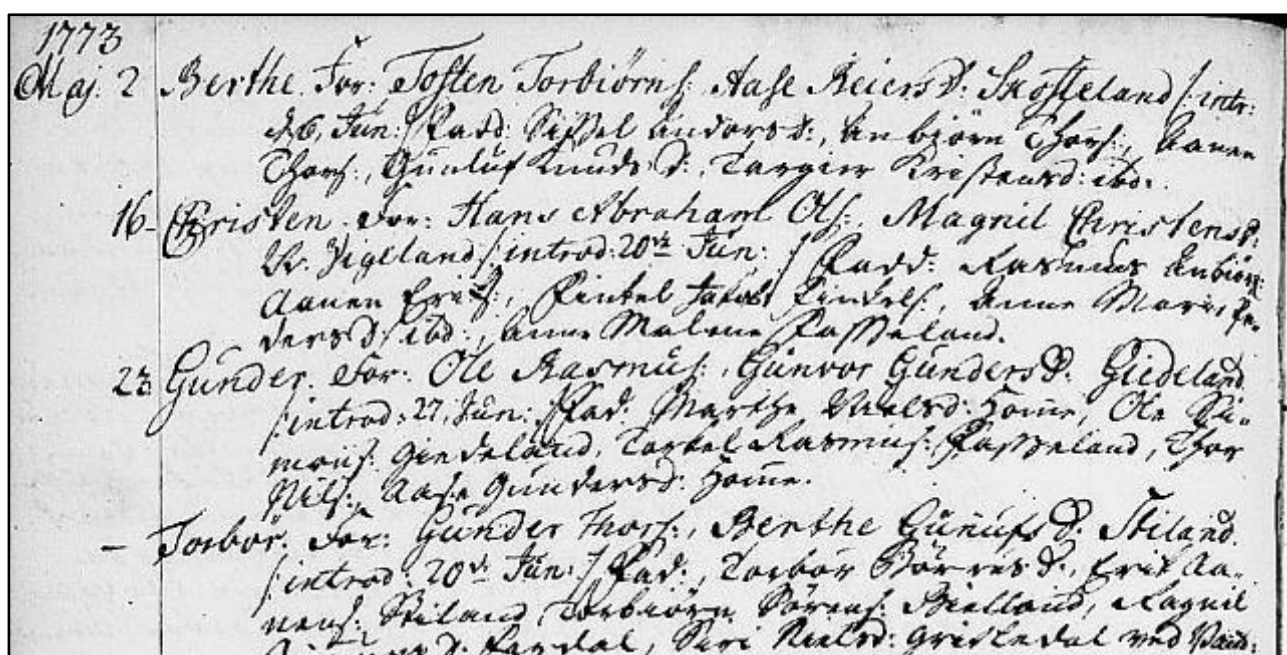 1773
Maj. 2 Berthe. For: Tosten Torbiörns: Aase Reiersd: Skofteland /: intr:
d. 6, Jun: / Fadd: Sissel Andersd:, Anbjörn Thors:, Aanen
Thors:, Gunluf Knudsd:, Targier Kristensd: ibd:
16- Christen. For: Hans Abraham Ols:, Magnil Christensd:
Vigeland /: introd: 20de Jun: / Fadd: Rasmus Anbiörns:
Aanen Erichs:, Fintel Jacobs:, Anne Marie Pe-
dersd: ibd:, Anne Malene Fasseland.
23 Gunder. For: Ole Rasmus:, Gunvor Gundersd: Giedeland
/: introd: 27, Jun: / Fad: Marthe Nielsd: Home, Ole Si-
mons: Giedeland, Torkel Rasmus: Fasseland, Thor
Nils:, Aase Gundersd: Home.
- Torbor. For: Gunder Thors:, Berthe Gunufsd: Stiland.
/: introd: 20de Jun: / Fad:, Torbor Börresd:, Erik Aa-
nens: Stiland, Torbiörn Sörens: Bielland, Ragnil
d: Fardal, Siri Nielsd: Gristedal ved